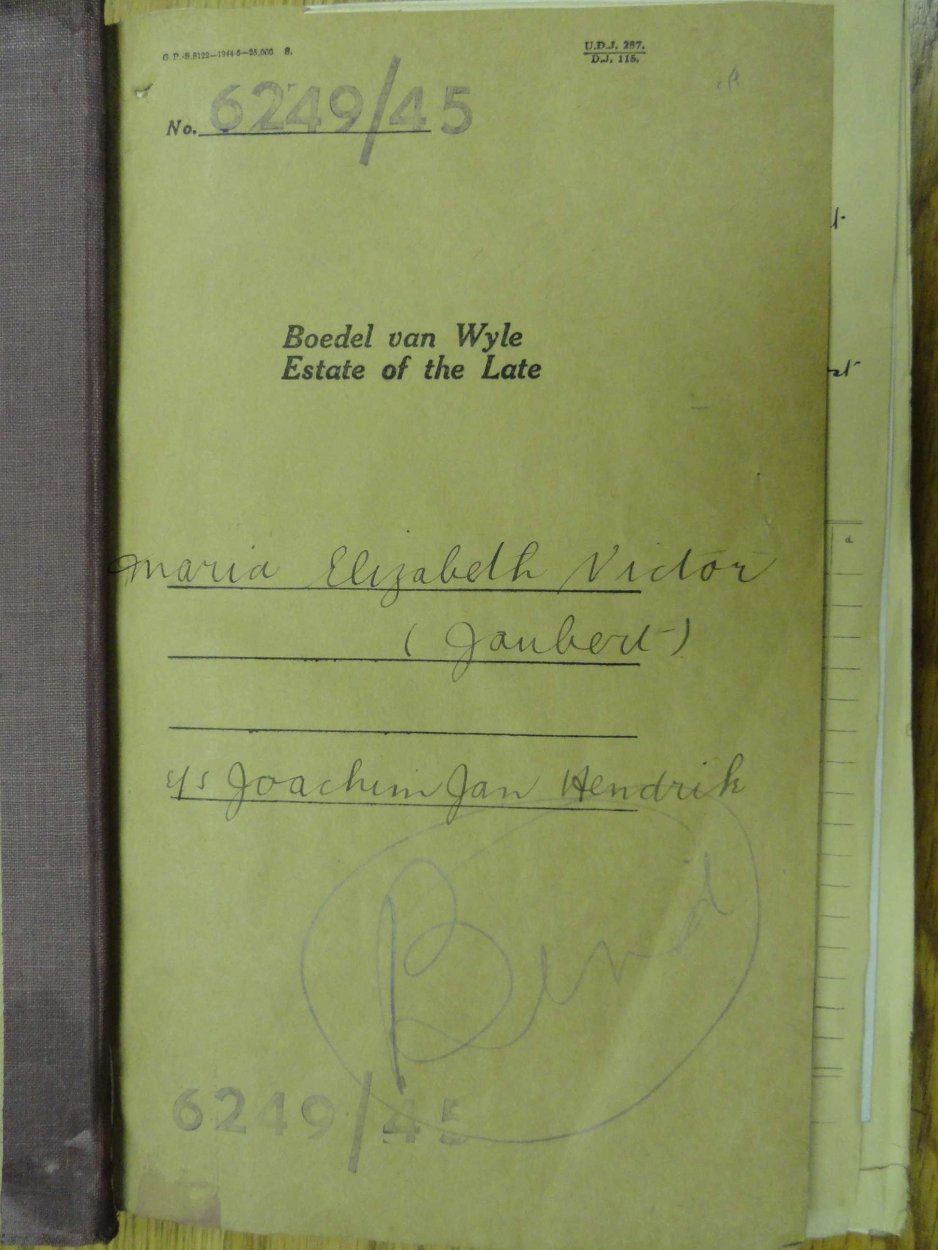 G.P.-S.8122—1944-5—25,000 S.
U.D.J. 257.
D.J. 115.
No. 6249/45
Boedel van Wyle
Estate of the Late
Maria Elizabeth Victor
(Joubert)
s/s Joachim Jan Hendrik
Bind
6249/45